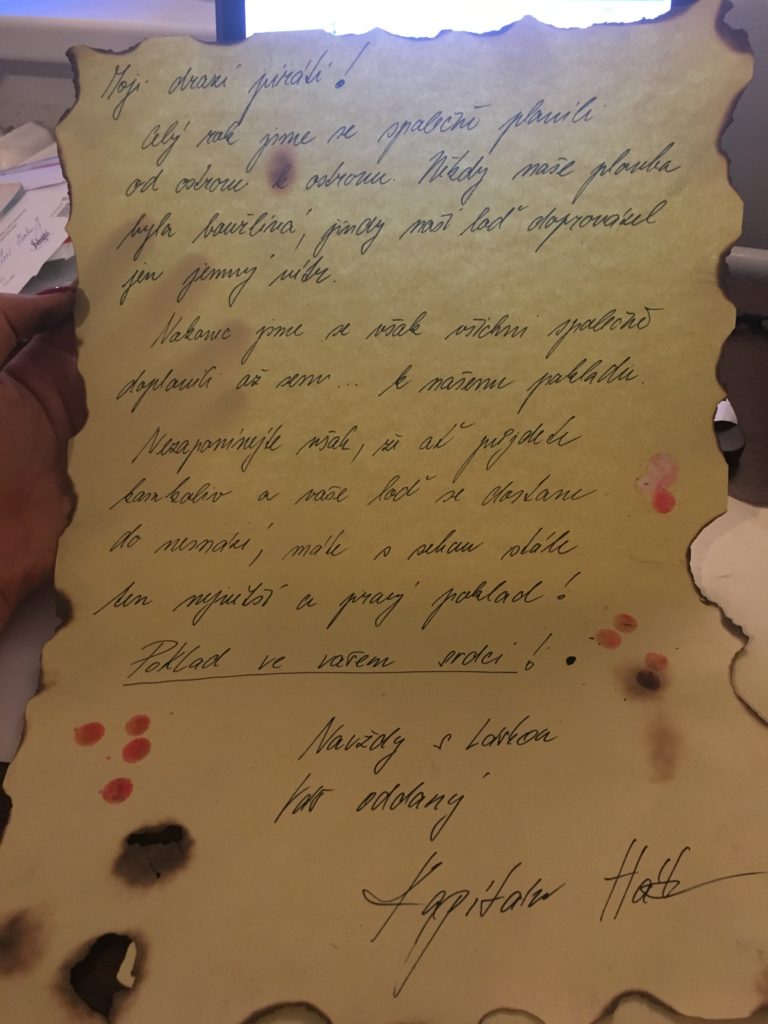 Moji drazí piráti!
Celý rok jsme se společně plavili
od ostrovu k ostrovu. Někdy naše plavba
byla bouřlivá, jindy naší loď doprovázel
jen jemný vítr.
Nakonec jsme se však všichni společně
doplavili až sem... k našemu pokladu.
Nezapomínejte však, že ať půjdete
kamkoliv a vaše loď se dostane
do nesnází, máte s sebou stále
ten největší a pravý poklad!
Poklad ve vašem srdci!
Navždy s láskou
Váš oddaný
Kapitán